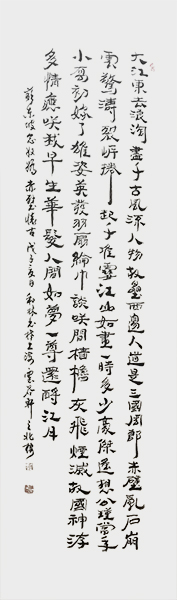 大江東去浪淘盡千古風流人物故壘西邊人道是三國周郎赤壁亂石崩
雲驚濤裂岸捲起千堆雪江山如畫一時多少豪傑遙想公瑾當年
小喬初嫁了雄姿英發羽扇綸巾談咲間檣櫓灰飛煙滅故國神游
多情應咲我早生華髮人間如夢一尊還酹江月
蘇東坡念奴嬌赤壁懷古戊子冬日林書於上海雲軒之北樓